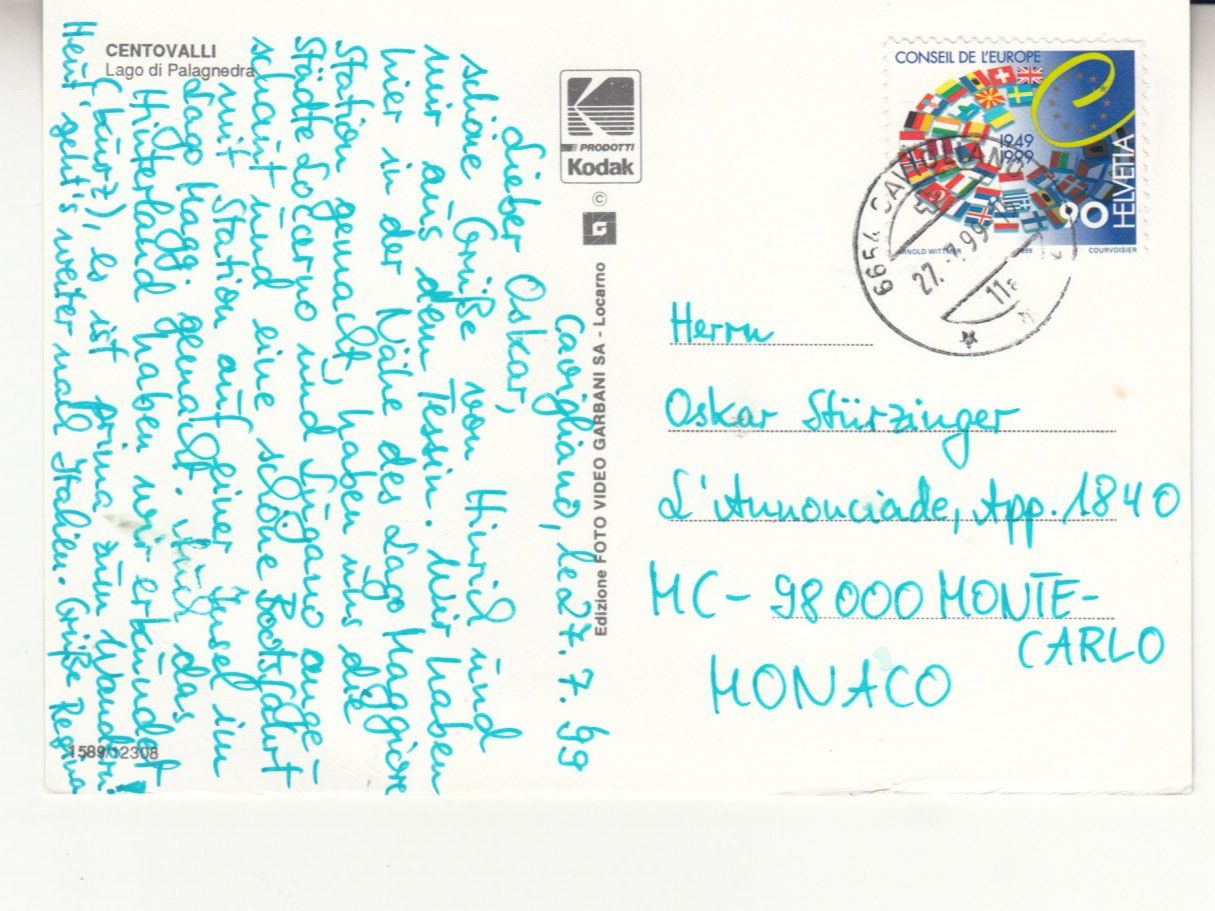 CENTOVALLI
Lago di Palagnedra
Cavigliano, le 27.7.99
Lieber Oskar,
schöne Grüße von Hinrich und
mir aus dem Tessin. Wir haben
hier in der Nähe des Lago Maggiore
Station gemacht, haben uns die
Städte Locarno und Lugano ange-
schaut und eine schöne Bootsfahrt
mit Station auf einer Insel im
Lago Magg. gemacht. Auch das
Hinterland haben wir erkundet
(kurz), es ist prima zum Wandern!
Heut' geht's weiter nach Italien. Grüße Regina
1589/12308
PRODOTTI
Kodak
©
G
Edizione FOTO VIDEO GARBANI SA - Locarno
CONSEIL DE L'EUROPE
1949
1999
HELVETIA
90
ARNOLD WITTMER
1999
COURVOISIER
6654 CAVIGLIANO
27. 7.99
11
Herrn
Oskar Stürzinger
L'Annonciade, App. 1840
MC-98000 MONTE-
CARLO
MONACO